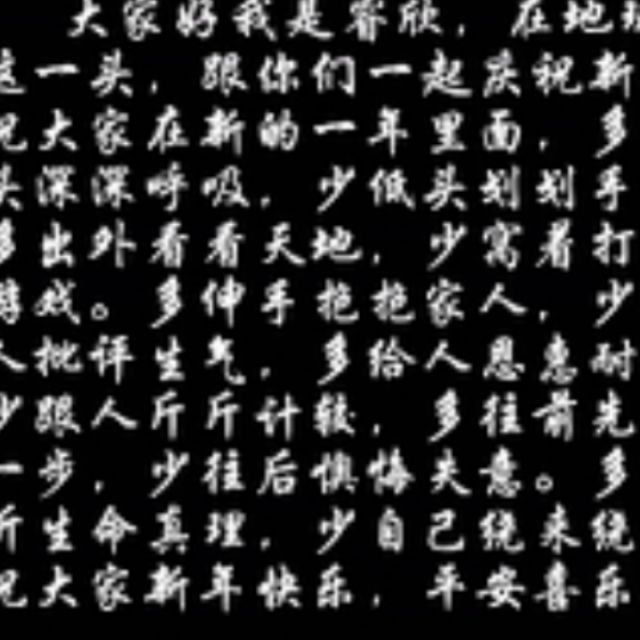 大家好我是睿欣，在地球
这一头，跟你们一起庆祝新
祝大家在新的一年里面，多
头深深呼吸，少低头划划手
多出外看看天地，少窝着打
游戏。多伸手抱抱家人，少
人批评生气，多给人恩惠耐
少跟人斤斤计较，多往前先
一步，少往后懊悔失意。多
听生命真理，少自己绕来绕
祝大家新年快乐，平安喜乐